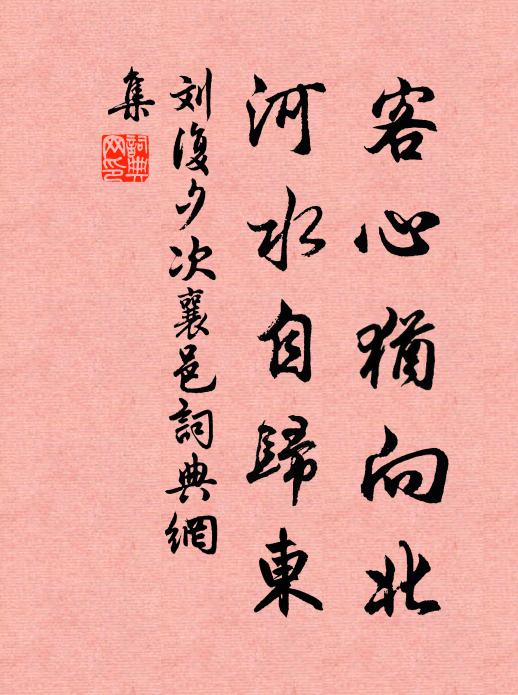 客心猶向北
河水自歸東
刘復夕次襄邑詞典網
集
詞典
网印